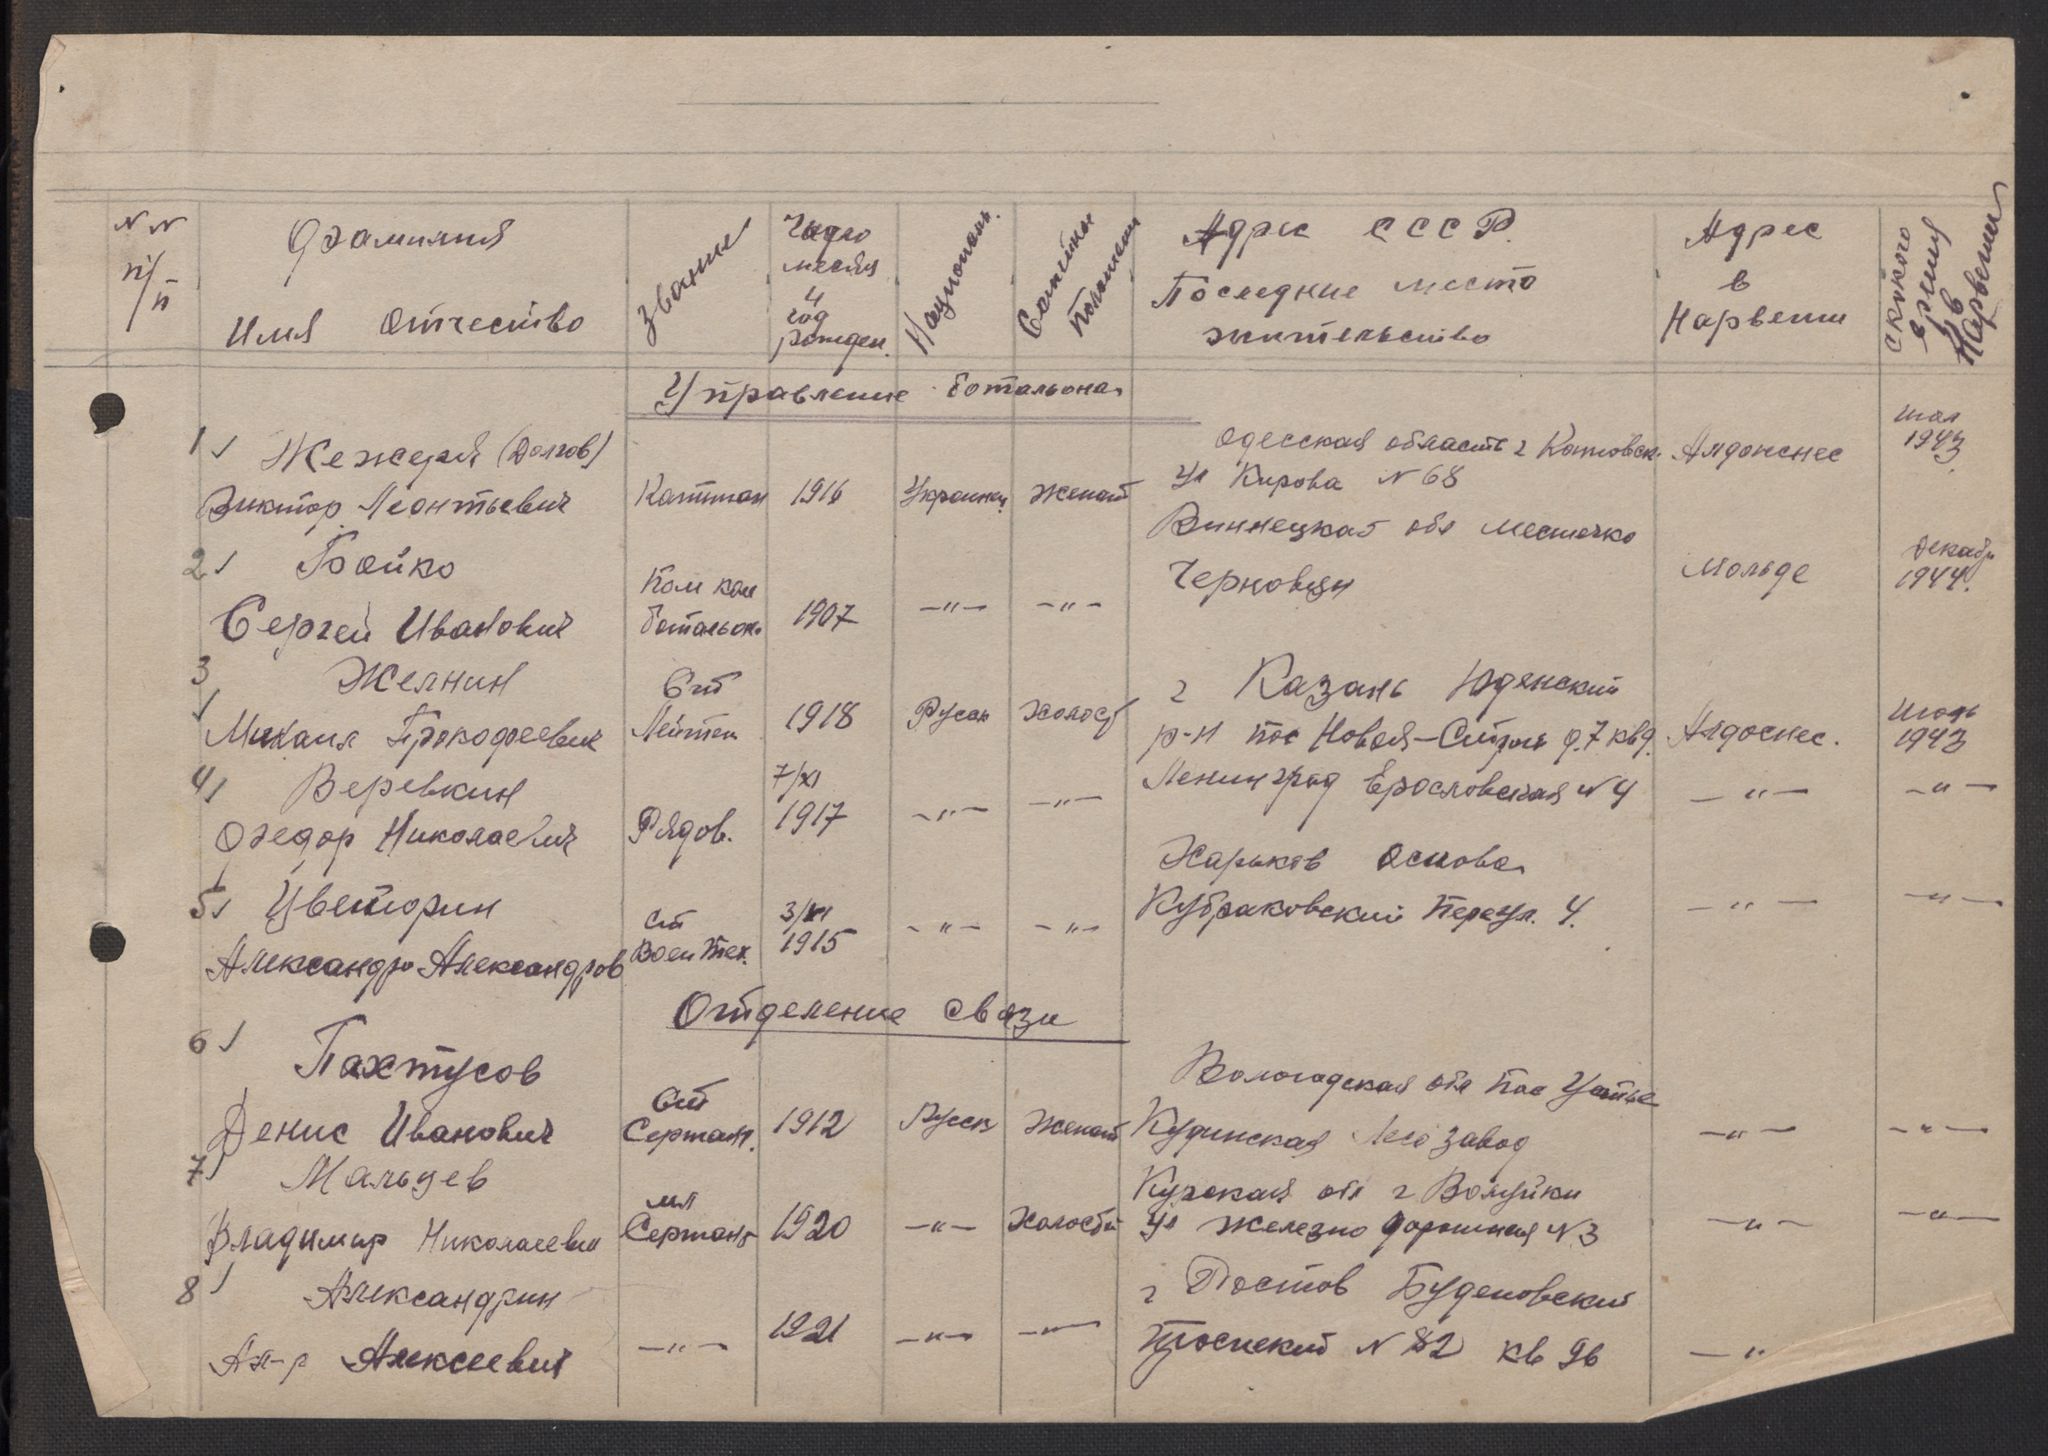 N N п/п
Фамилия
Имя Отчество
Звание
Число месяц и год рожден.
Националь.
Адрис СССР.
Последние место
жительство
Адрес
в
Нарвегии
скокого время в Нарвегии
Управление ботальона
1 Жежеря (Долгов)
Виктор Леонтьевич Капитан 1916 Украинец Женат
Одесская область г Котовск.
Ул Кирова N 68
Алдонснес
мая 1943
2 Бойко
Сергей Иванович
Пом ком ботальон.
1907 —"— —"—
Виннецкая обл месточко
Черновци
Мольде
декабр 1944.
3 Желнин
Михаил Прокофеевич
Ст Лейтен
1918 Русск Холост
г Казань Юдинский
р-н пос Новая-Стройк д.7 кв9.
Алдоснес.
1943
4 Веревкин
Федор Николаевич
Рядов.
7/XI 1917 —"— —"—
Ленинград Ерословская N 4
—"— —"—
5 Цветорин
Александр Александров
ст Воен тех.
1915 —"— —"—
Харьков Основа
Кубраковский Переул. 4.
—"— —"—
Отделение связи
6 Пахтусов
Денис Иванович
Ст Сержант.
1912 Русск Женат
Вологодская обл пос Устье
Кудинская Лесозавод
—"— —"—
7 Мальцев
Владимир Николаевич
мл Сержант
1920 —"— Холостой
Курская обл г Волуйки
Ул Железно дорожная N 3
—"— —"—
8 Александрин
Ал-р Алексеевич
—"— 1921 —"— —"—
г Ростов Буденовский
Проспект N 82 кв 96
—"